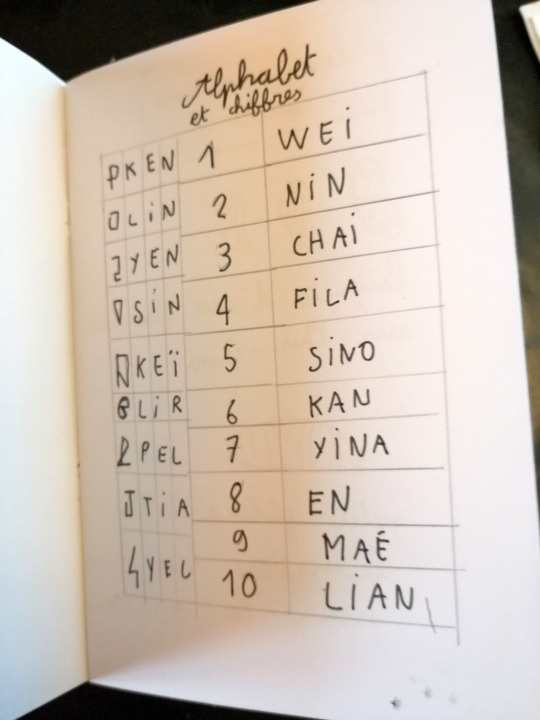 Alphabet
et chiffres
KEN 1 WEi
LiN 2 NiN
YEN 3 CHAi
SiN 4 FiLA
KEÏ 5 SiNO
LiR 6 KAN
PEL 7 YiNA
TiA 8 EN
9 MAÉ
YEL 10 LiAN